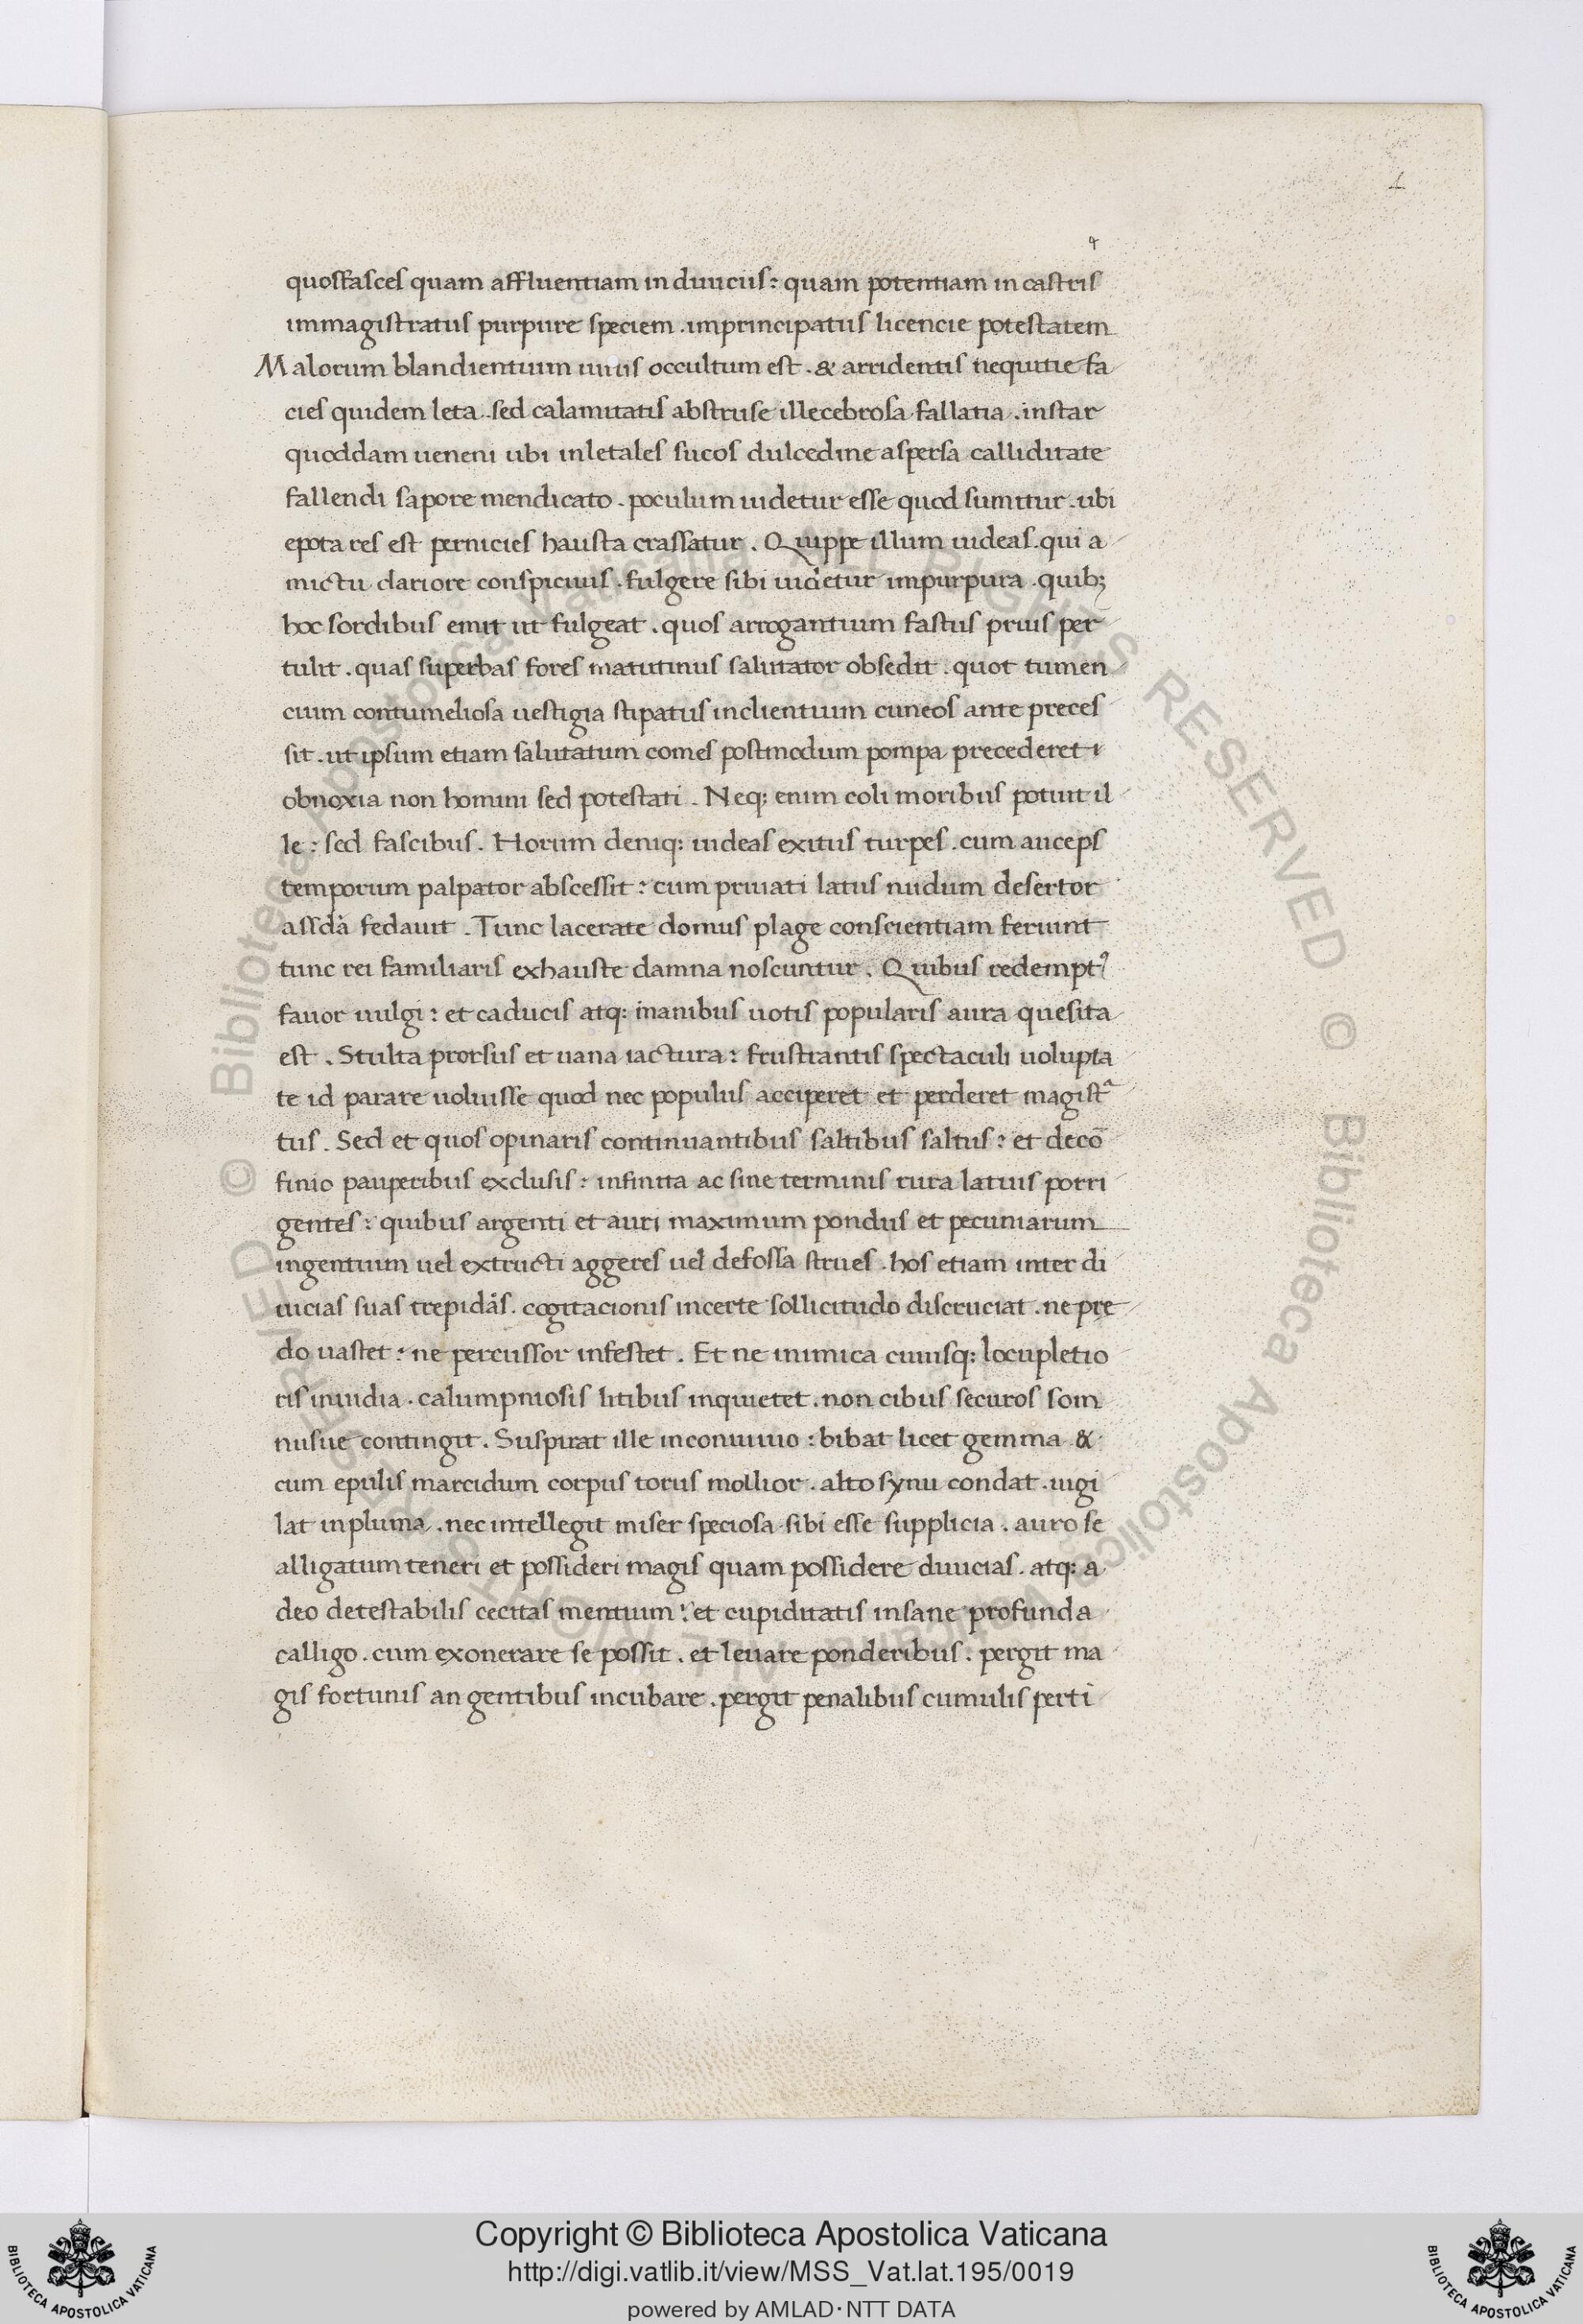 4
quosfasces quam affluentiam in diuiciis : quam potentiam in castris
immagistratus purpure speciem . imprincipatus licencie potestatem
Malorum blandientium uirus occultum est . & arridentis nequitie fa
cies quidem leta . sed calamitatis abstruse illecebrosa fallatia . instar
quoddam ueneni ubi inletales sucos dulcedine aspersa calliditate
fallendi sapore mendicato . poculum uidetur esse quod sumitur . ubi
epota res est pernicies hausta crassatur . Quippe illum uideas . qui a
mictu clariore conspicuus . fulgere sibi uidetur impurpura . quib;
hoc sordibus emit ut fulgeat . quos arrogantium fastus prius per
tulit . quas superbas fores matutinus salutator obsedit . quot tumen
cium contumeliosa uestigia stipatus inclientium cuneos ante preces
sit . ut ipsum etiam salutatum comes postmodum pompa precederet
obnoxia non homini sed potestati . Neq; enim coli moribus potuit il
le : sed fascibus . Horum deniq; uideas exitus turpes . cum auceps
temporum palpator abscessit : cum priuati latus nudum desertor
fedauit . Tunc lacerate domus plage conscientiam feriunt
tunc rei familiaris exhauste damna noscuntur . Quibus redempt⁹
fauor uulgi : et caducis atq; inanibus uotis popularis aura quesita
est . Stulta prorsus et uana iactura : frustrantis spectaculi uolupta
te id parare uoluisse quod nec populus acciperet et perderet magistᵃ
tus . Sed et quos opinaris continuantibus saltibus saltus : et decō
finio pauperibus exclusis : infinita ac sine terminis rura latius porri
gentes : quibus argenti et auri maximum pondus et pecuniarum
ingentium uel extructi aggeres uel defossa strues . hos etiam inter di
uicias suas trepidās . cogitacionis incerte sollicitudo discruciat . ne pre
do uastet : ne percussor infestet . Et ne inimica cuiusq; locupletio
ris inuidia . calumpniosis litibus inquietet . non cibus securos som
nusue contingit . Suspirat ille inconuiuio : bibat licet gemma &
cum epulis marcidum corpus torus mollior . alto synu condat . uigi
lat inpluma . nec intellegit miser speciosa sibi esse supplicia . auro se
alligatum teneri et possideri magis quam possidere diuicias . atq; a
deo detestabilis cecitas mentium : et cupiditatis insane profunda
calligo . cum exonerare se possit . et leuare ponderibus . pergit ma
gis fortunis an gentibus incubare . pergit penalibus cumulis perti
© Biblioteca Apostolica Vaticana ALL RIGHTS RESERVED © Biblioteca Apostolica Vaticana ALL RIGHTS RESERVED
Copyright © Biblioteca Apostolica Vaticana
http://digi.vatlib.it/view/MSS_Vat.lat.195/0019
powered by AMLAD·NTT DATA
BIBLIOTECA APOSTOLICA VATICANA
BIBLIOTECA APOSTOLICA VATICANA